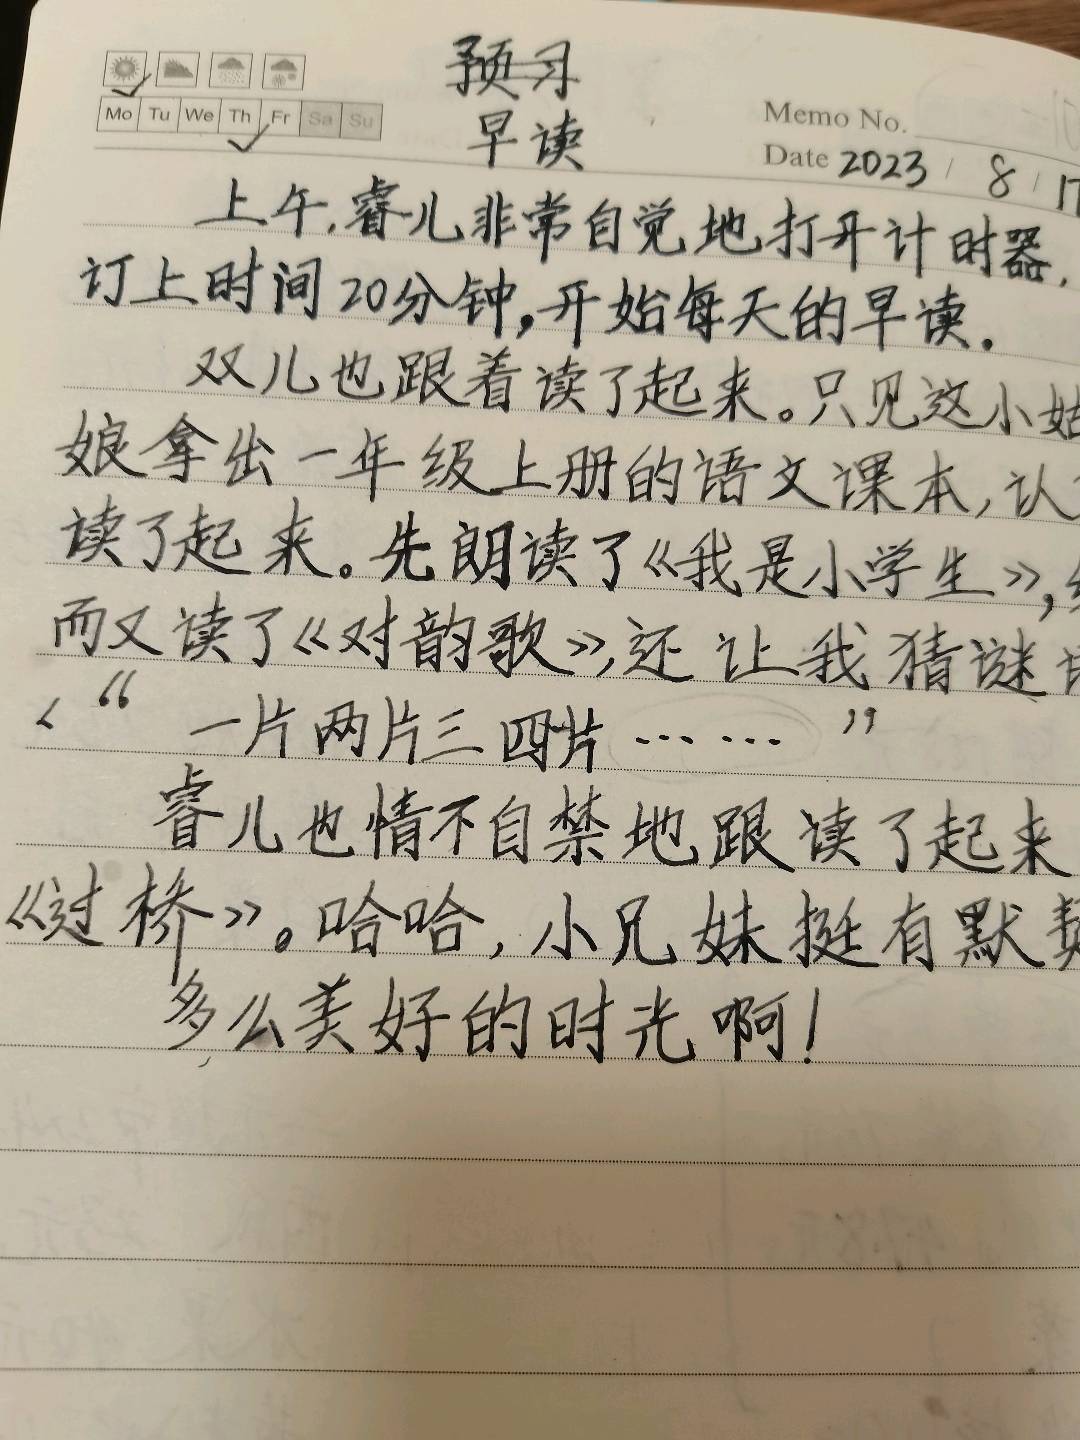 预习
Mo Tu We Th Fr Sa Su
早读
Memo No.
Date 2023 / 8 / 17
上午,睿儿非常自觉地打开计时器,
订上时间20分钟,开始每天的早读.
双儿也跟着读了起来。只见这小姑
娘拿出一年级上册的语文课本,认
读了起来。先朗读了《我是小学生》,
而又读了《对韵歌》,还让我猜谜
“一片两片三四片……”
睿儿也情不自禁地跟读了起来
《过桥》。哈哈,小兄妹挺有默契
多么美好的时光啊!